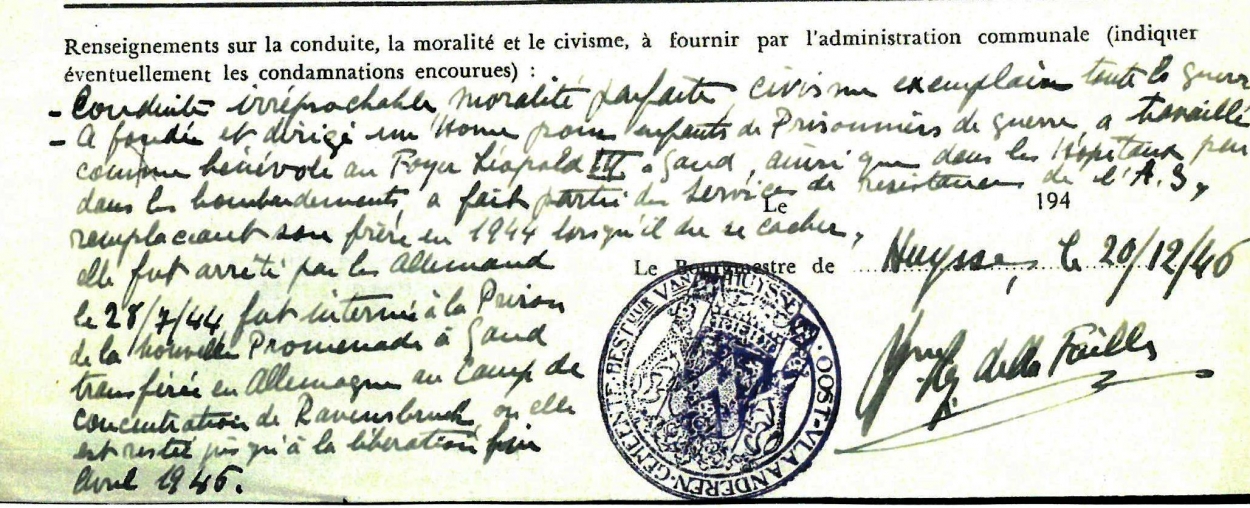 Renseignements sur la conduite, la moralité et le civisme, à fournir par l'administration communale (indiquer
éventuellement les condamnations encourues) :
- Conduite irréprochable moralité parfaite, civisme exemplaire toute la guerre
- A fondée et dirigé un Home pour enfants de Prisonniers de guerre, a travaillé
comme bénévole au Foyer Léopold III à Gand, ainsi que dans les Hôpitaux pen
dans les bombardements, a fait partie des services de résistances de l'A.S,
Le 194
remplaciant son frère en 1944 lorsqu'il du se cacher,
elle fut arrêté par les Allemand
Le Bourgmestre de Huysse, le 20/12/46
le 28/7/44 fut internée à la Prison
de la nouvelle Promenade à Gand
transférée en Allemagne au Camp de
concentration de Ravensbruck où elle
est restée jusqu'à la libération fin
Avril 1945.
della Faille
GEMEENTE-BESTUUR VAN HUYSSE · OOST-VLAANDEREN